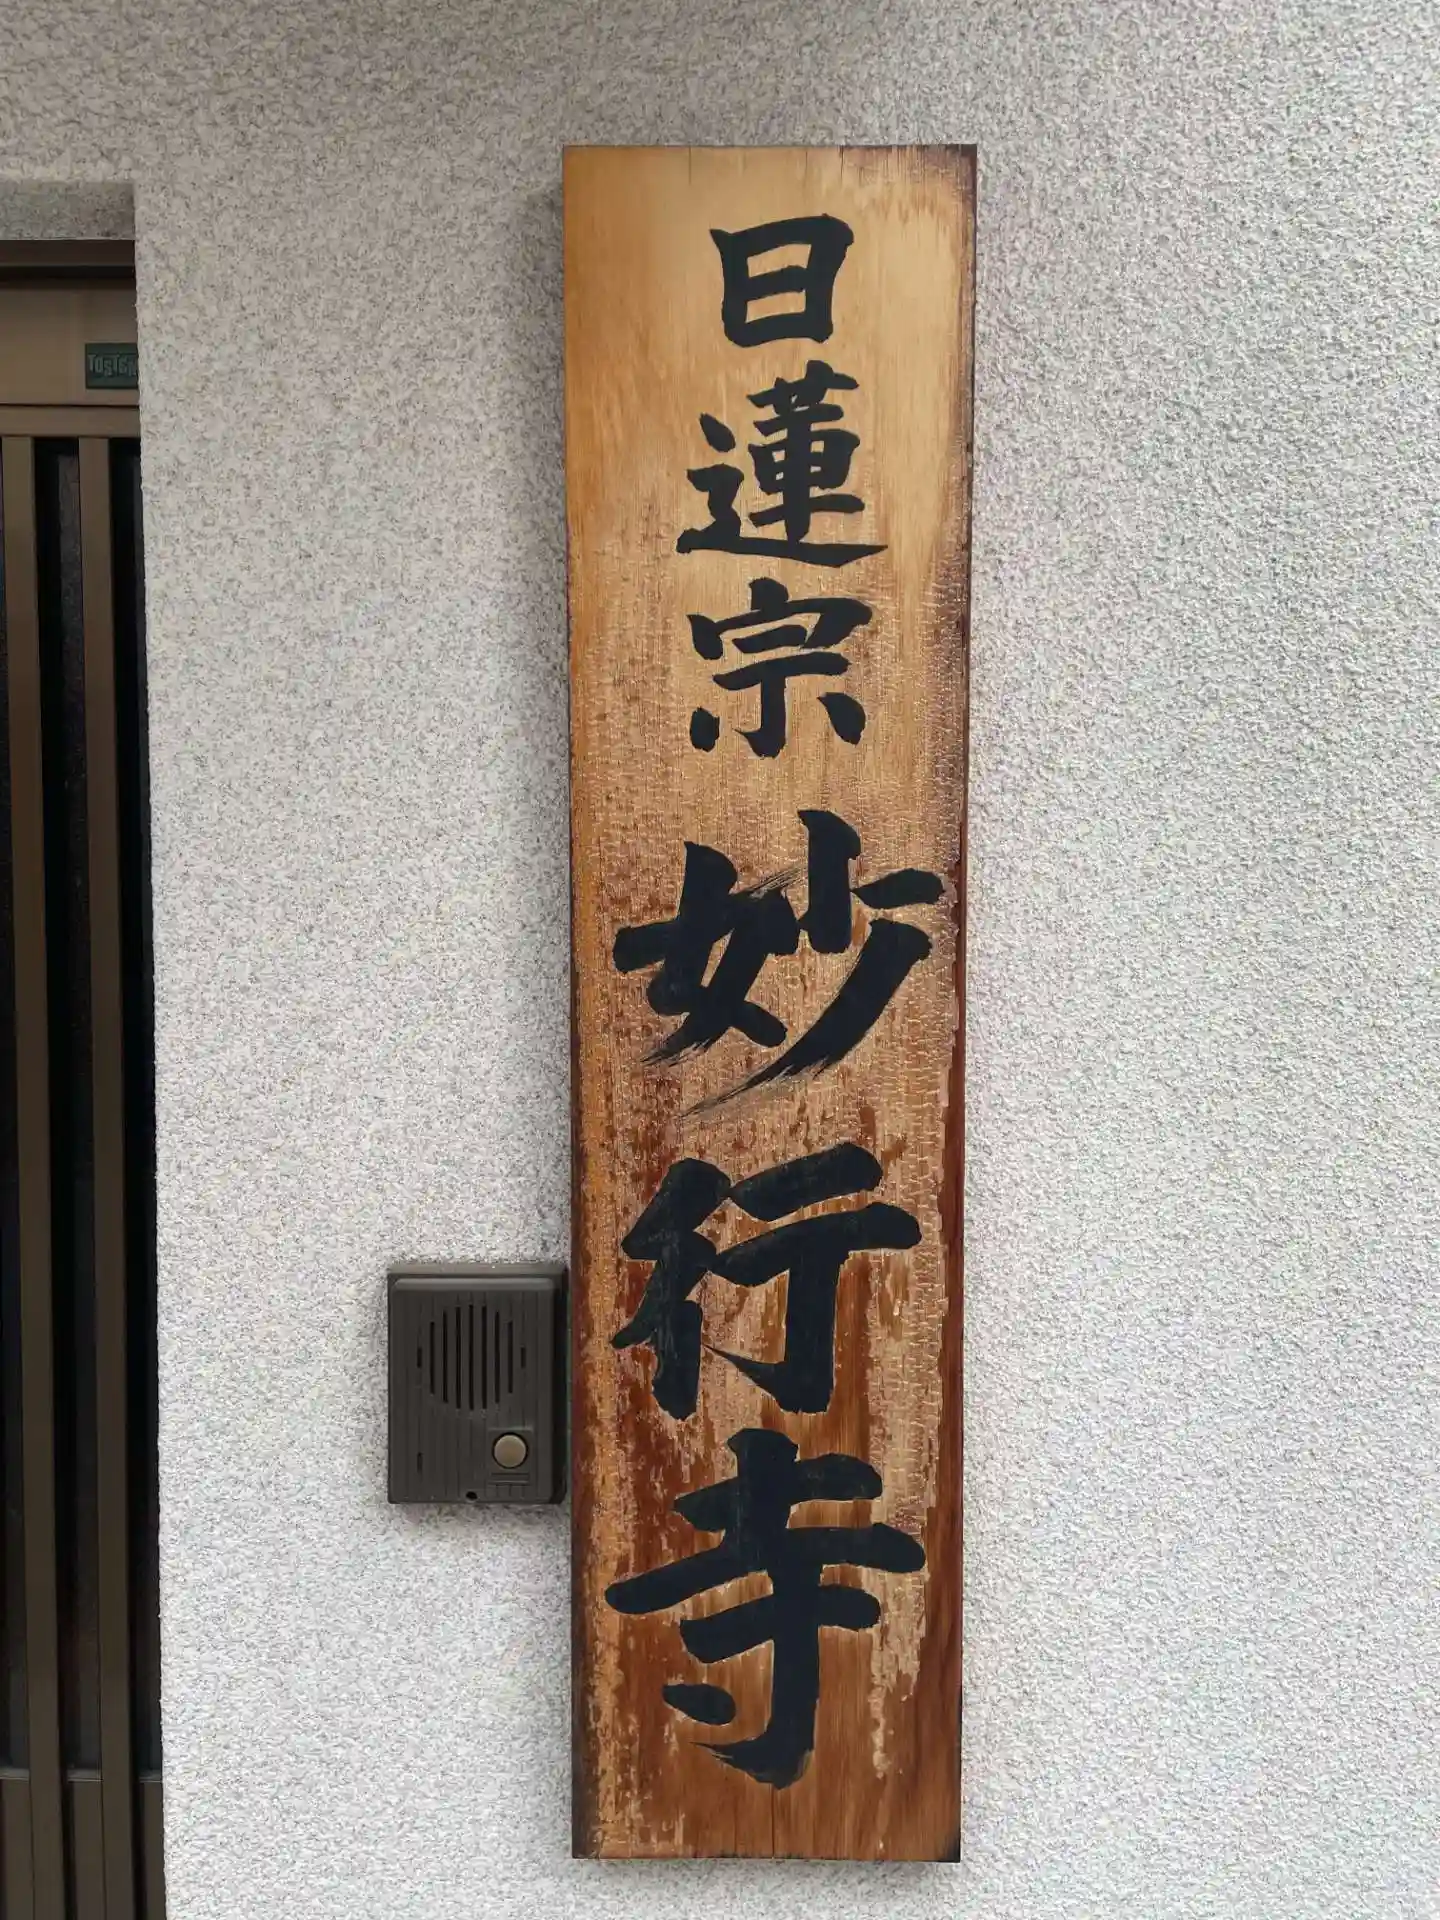 日蓮宗 妙行寺
TOSTEM